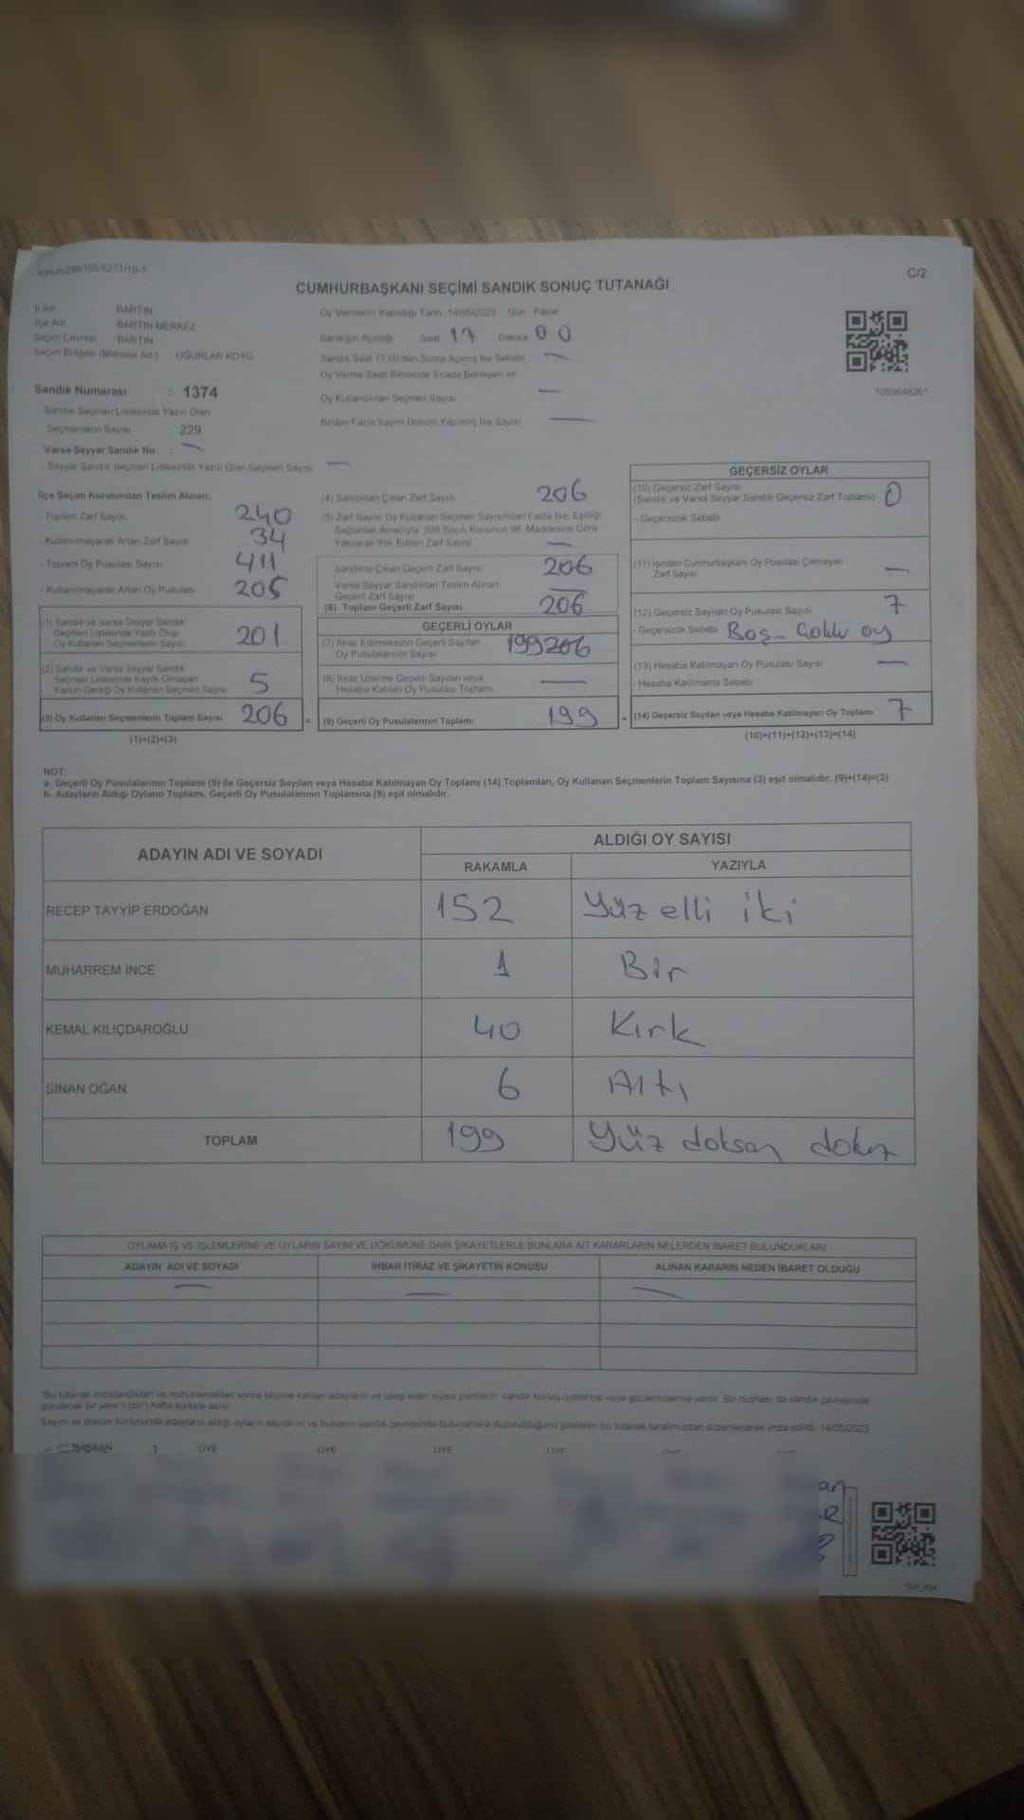 C/2
CUMHURBAŞKANI SEÇİMİ SANDIK SONUÇ TUTANAĞI
İl Adı BARTIN
İlçe Adı BARTIN MERKEZ
Seçim Çevresi BARTIN
Seçim Bölgesi (Mahalle Adı) UĞURLAR KÖYÜ
Sandık Numarası : 1374
Sandık Seçmen Listesinde Yazılı Olan
Seçmenlerin Sayısı : 229
Varsa Seyyar Sandık No : —
Seyyar Sandık Seçmen Listesinde Yazılı Olan Seçmen Sayısı —
Oy Vermenin Yapıldığı Tarih: 14/05/2023 Gün: Pazar
Sandığın Açıldığı Saat 17 Dakika 00
Oy Kullandırılan Seçmen Sayısı —
1050648261
İlçe Seçim Kurulundan Teslim Alınan;
Toplam Zarf Sayısı 240
Kullanılmayarak Artan Zarf Sayısı 34
Toplam Oy Pusulası Sayısı 411
Kullanılmayarak Artan Oy Pusulası 205
(1) Sandık ve varsa Seyyar Sandık
Seçmen Listesinde Yazılı Olup
Oy Kullanan Seçmenlerin Sayısı 201
(2) Sandık ve Varsa Seyyar Sandık
Seçmen Listesinde Kayıtlı Olmayan
Kanun Gereği Oy Kullanan Seçmen Sayısı 5
(3) Oy Kullanan Seçmenlerin Toplam Sayısı 206
(1)+(2)=(3)
(4) Sandıktan Çıkan Zarf Sayısı 206
Sandıkta Çıkan Geçerli Zarf Sayısı 206
Varsa Seyyar Sandıktan Teslim Alınan
Geçerli Zarf Sayısı —
(6) Toplam Geçerli Zarf Sayısı 206
GEÇERLİ OYLAR
(7) İtiraz Edilmeksizin Geçerli Sayılan
Oy Pusulalarının Sayısı 199206
(8) İtiraz Üzerine Geçerli Sayılan veya
Hesaba Katılan Oy Pusulası Toplamı —
(9) Geçerli Oy Pusulalarının Toplamı 199
GEÇERSİZ OYLAR
(10) Geçersiz Zarf Sayısı
(Sandık ve Varsa Seyyar Sandık Geçersiz Zarf Toplamı) 0
- Geçersizlik Sebebi
(11) İçinden Cumhurbaşkanı Oy Pusulası Çıkmayan
Zarf Sayısı —
(12) Geçersiz Sayılan Oy Pusulası Sayısı 7
- Geçersizlik Sebebi Boş - Çoklu oy
(13) Hesaba Katılmayan Oy Pusulası Sayısı —
- Hesaba Katılmama Sebebi
(14) Geçersiz Sayılan veya Hesaba Katılmayan Oy Toplamı 7
(10)+(11)+(12)+(13)=(14)
NOT:
a- Geçerli Oy Pusulalarının Toplamı (9) ile Geçersiz Sayılan veya Hesaba Katılmayan Oy Toplamı (14) Toplamları, Oy Kullanan Seçmenlerin Toplam Sayısına (3) eşit olmalıdır. (9)+(14)=(3)
b- Adayların Aldığı Oyların Toplamı, Geçerli Oy Pusulalarının Toplamına (9) eşit olmalıdır.
ADAYIN ADI VE SOYADI
ALDIĞI OY SAYISI
RAKAMLA YAZIYLA
RECEP TAYYİP ERDOĞAN 152 Yüz elli iki
MUHARREM İNCE 1 Bir
KEMAL KILIÇDAROĞLU 40 Kırk
SİNAN OĞAN 6 Altı
TOPLAM 199 Yüz doksan dokuz
OYLAMA İŞ VE İŞLEMLERİNE VE OYLARIN SAYIM VE DÖKÜMÜNE DAİR ŞİKAYETLERLE BUNLARA AİT KARARLARIN NELERDEN İBARET BULUNDUKLARI
ADAYIN ADI VE SOYADI İHBAR İTİRAZ VE ŞİKAYETİN KONUSU ALINAN KARARIN NEDEN İBARET OLDUĞU
— — —
BAŞKAN ÜYE ÜYE ÜYE ÜYE